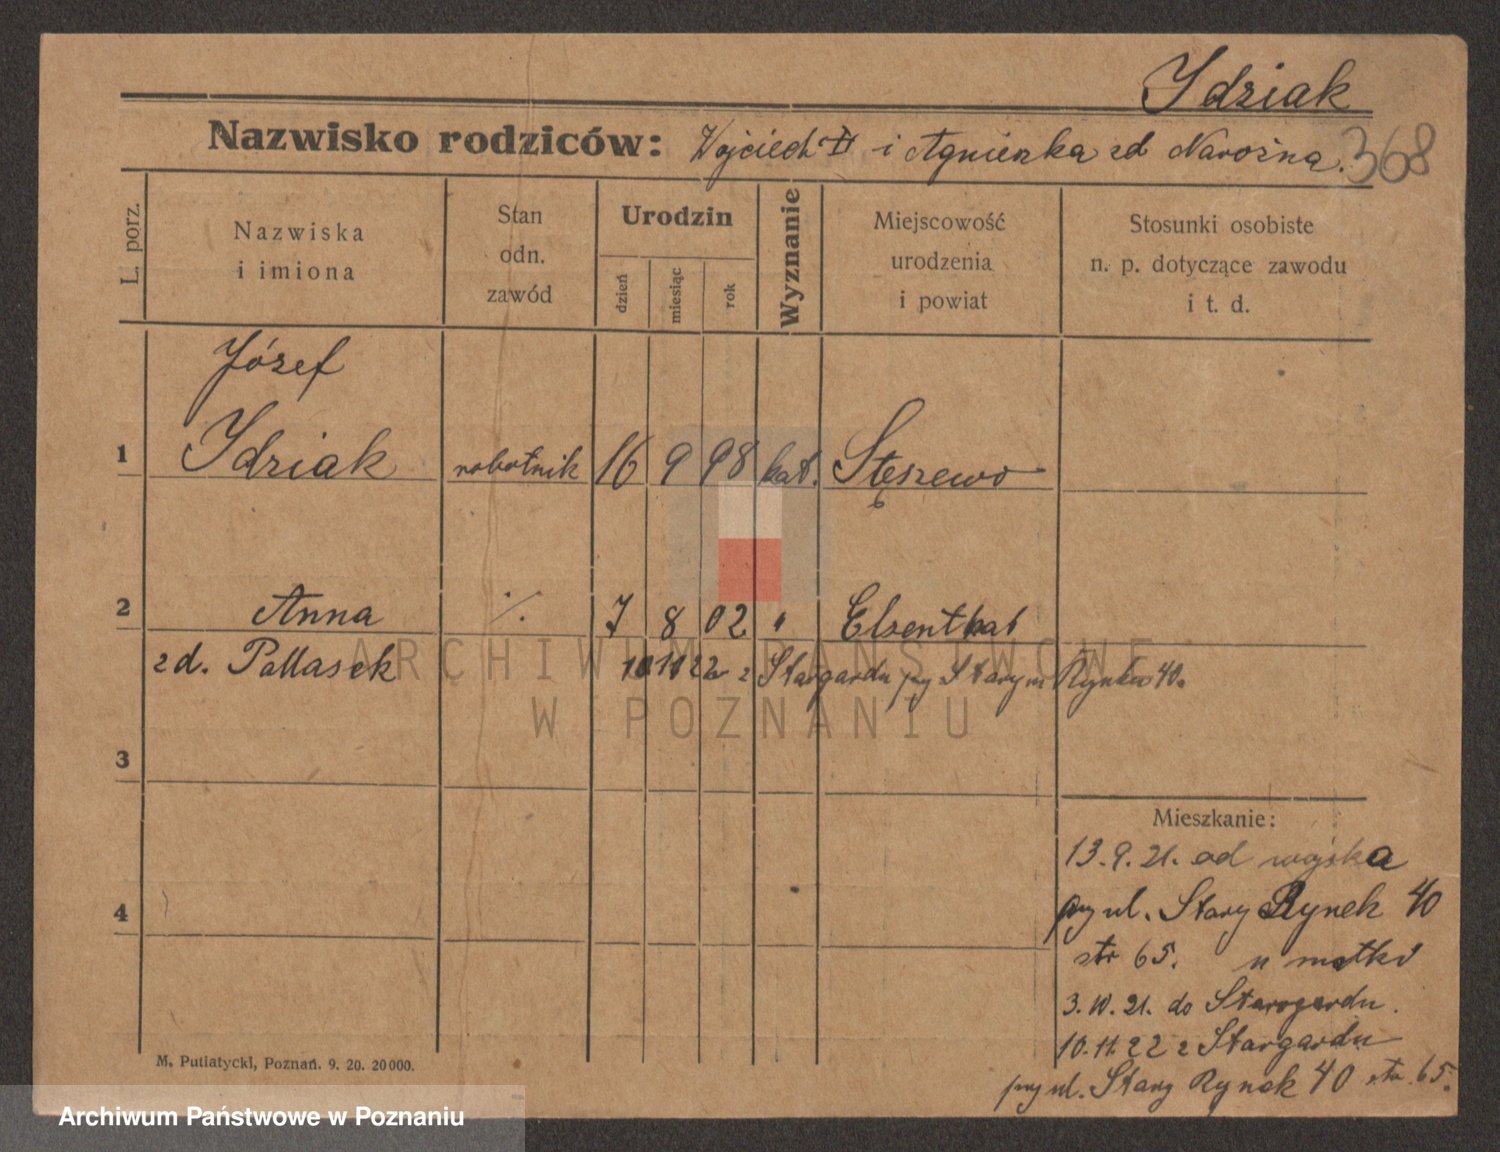 Idziak
Nazwisko rodziców: Wojciech † i Agnieszka zd Narożna.
368
L. porz.
Nazwiska
i imiona
Stan
odn.
zawód
Urodzin
dzień
miesiąc
rok
Wyznanie
Miejscowość
urodzenia
i powiat
Stosunki osobiste
n. p. dotyczące zawodu
i t. d.
Józef
1 Idziak robotnik 16 9 98 kat. Stęszewo
2 Anna ·/. 7 8 02 " Elsenthal
zd. Pallasek 10 11 22 z Stargardu przy Starym Rynku 40.
3
4
Mieszkanie:
13.9.21. od wojska
przy ul. Stary Rynek 40
str 65. u matki
3.10.21. do Starogardu.
10.11.22 z Stargardu
przy ul. Stary Rynek 40 str. 65.
M. Putiatycki, Poznań. 9. 20. 20000.
ARCHIWUM PAŃSTWOWE
W POZNANIU
Archiwum Państwowe w Poznaniu